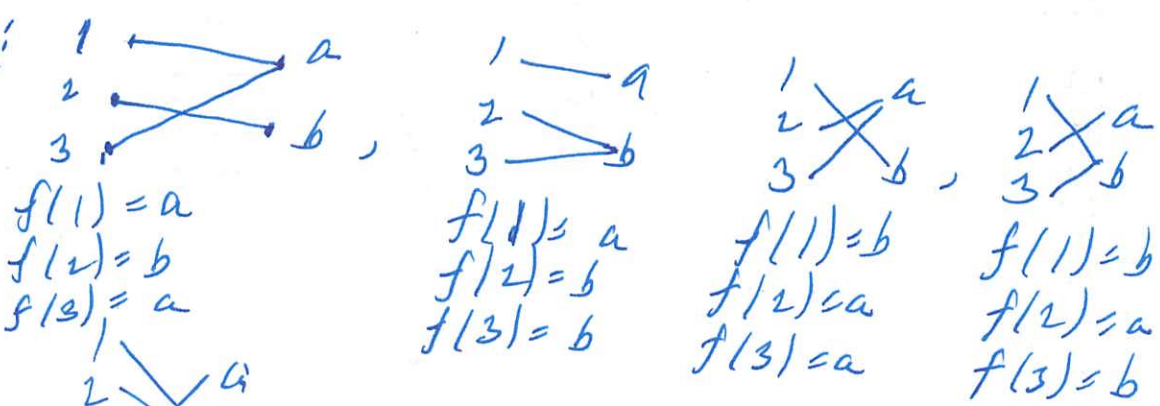 1 a
2 b ,
3
f(1) = a
f(2) = b
f(3) = a
1 a
2
3 b
f(1) = a
f(2) = b
f(3) = b
1 a
2
3 b ,
f(1) = b
f(2) = a
f(3) = a
1 a
2
3 b
f(1) = b
f(2) = a
f(3) = b
1
2 a